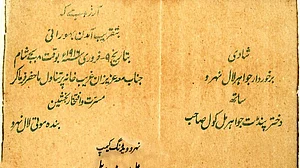 شادی
برخوردار جواہر لال نہرو
ساتھ
دختر پنڈت جواہر مل کول صاحب
آرزو ہے کہ
بتقریب آمدن بہورانی
بتاریخ ۹ - فروری ۱۹۱۶ بوقت بجے شام
جناب معہ عزیزان غریب خانہ پر تناول ماحضر فرما کر
مسرت و افتخار بخشیں
بندہ موتی لال نہرو
نہرو ویڈنگ کیمپ